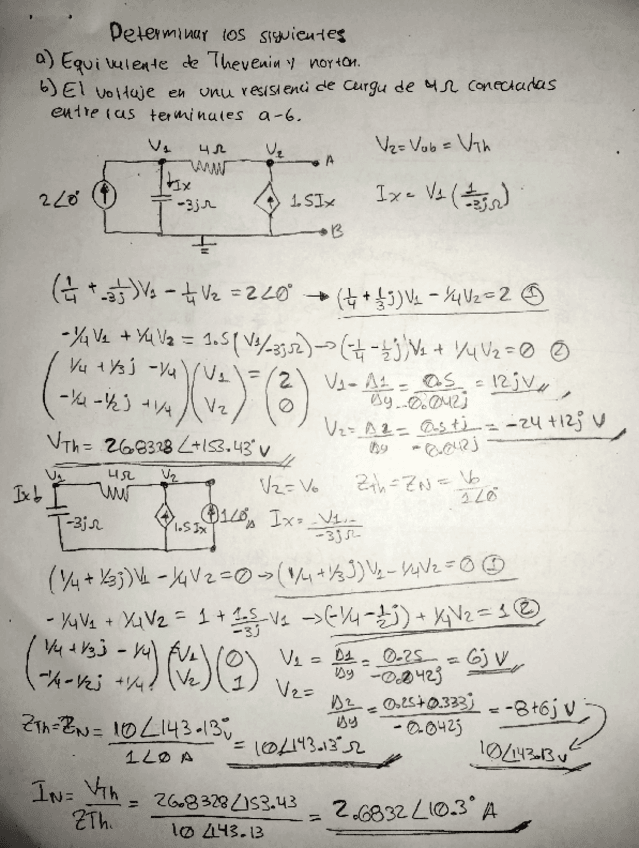 Determinar los siguientes
a) Equivalente de Thevenin y norton.
b) El voltaje en una resistenci de carga de 4Ω conectadas
entre las terminales a-b.
V1 4Ω V2 A V2=Vab=VTh
2∠0° Ix -3jΩ 1.5Ix Ix= V1(1/-3jΩ)
B
(1/4 + 1/-3j)V1 - 1/4 V2 = 2∠0° → (1/4 + 1/3j)V1 - 1/4V2 = 2 ①
-1/4V1 + 1/4V2 = 1.5(V1/-3jΩ) → (-1/4 - 1/2j)V1 + 1/4V2 = 0 ②
(1/4 +1/3j -1/4) (V1) = (2) V1= Δ1/Δy = 0.5/-0.042j = 12jV
(-1/4 -1/2j +1/4) (V2) (0) V2= Δ2/Δy = 0.5+j/-0.042j = -24+12j V
VTh= 26.8328∠+153.43° V
V1 4Ω V2 V2=Vo ZTh=ZN= Vo/1∠0°
Ix -3jΩ 1.5Ix 1∠0° A Ix= V1/-3jΩ
(1/4 + 1/3j)V1 - 1/4V2=0 → (1/4+1/3j)V1 - 1/4V2=0 ①
-1/4V1 + 1/4V2 = 1 + 1.5/-3j V1 → (-1/4 - 1/2j) + 1/4V2=1 ②
(1/4 +1/3j -1/4) (V1) (0) V1 = Δ1/Δy = 0.25/-0.042j = 6j V
(-1/4 -1/2j +1/4) (V2) (1) V2= Δ2/Δy = 0.25+0.333j/-0.042j = -8+6j V
ZTh=ZN= 10∠143.13° V/1∠0 A = 10∠143.13° Ω 10∠143.13 V
IN= VTh/ZTh = 26.8328∠153.43/10∠143.13 = 2.6832∠10.3° A